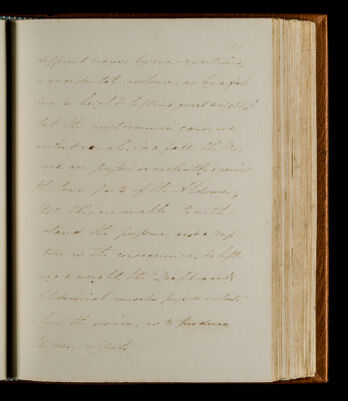 different ways by over exertions,
or accidental violence, as by a fall
from a height, lifting great weights
but the most common cause is a
violent cough. In a fall the Vis-
cera are pressed so violently against
the lower parts of the Abdomen,
that they are unable to with-
stand the pressure and a rup-
ture is the consequence. In lift-
ing a weight, the Diaphragm &
Abdominal muscles press so violent-
upon the viscera, as to produce
the same effect.